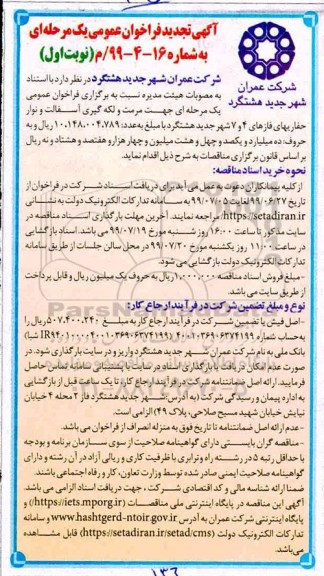 آگهی تجدید فراخوان عمومی یک مرحله ای
به شماره ۱۶-۴-۹۹/م (نوبت اول)
شرکت عمران
شهر جدید هشتگرد
شرکت عمران شهر جدید هشتگرد در نظر دارد با استناد
به مصوبات هیئت مدیره نسبت به برگزاری فراخوان عمومی
یک مرحله ای جهت مرمت و لکه گیری آسفالت و نوار
حفاریهای فازهای ۴ و ۷ شهر جدید هشتگرد با مبلغ به عدد: ۱۰،۱۴۸،۰۰۴،۷۸۹ ریال و به
حروف: ده میلیارد و یکصد و چهل و هشت میلیون و چهار هزار و هفتصد و هشتاد و نه ریال
بر اساس قانون برگزاری مناقصات به شرح ذیل اقدام نماید.
نحوه خرید اسناد مناقصه:
از کلیه پیمانکاران دعوت به عمل می آید برای دریافت اسناد شرکت در فراخوان از
تاریخ ۹۹/۰۶/۲۷ لغایت ۹۹/۰۷/۰۵ به سامانه تدارکات الکترونیک دولت به نشانی
https://setadiran.ir مراجعه نمایند. آخرین مهلت بارگذاری اسناد مناقصه در
سایت مذکور تا ساعت ۱۶:۰۰ روز شنبه مورخ ۹۹/۰۷/۱۹ می باشد. اسناد بازگشایی
در ساعت ۱۱:۰۰ روز یکشنبه مورخ ۹۹/۰۷/۲۰ در محل سالن جلسات از طریق سامانه
تدارکات الکترونیک دولت بازگشایی می شود.
- مبلغ فروش اسناد مناقصه ۱،۰۰۰،۰۰۰ ریال به حروف یک میلیون ریال و قابل پرداخت
از طریق سایت می باشد.
نوع و مبلغ تضمین شرکت در فرآیند ارجاع کار:
- اصل فیش یا تضمین شرکت در فرآیند ارجاع کار به مبلغ ۵۰۷،۴۰۰،۲۴۰ ریال
به حساب شماره
بانک ملی به نام شرکت عمران شهر جدید هشتگرد واریز و در سایت بارگذاری شود. در
صورت عدم امکان دریافت یا بارگذاری اسناد در سایت با پشتیبانی سامانه تماس حاصل
فرمایید. ارائه اصل ضمانتنامه شرکت در فرآیند ارجاع کار تا یک ساعت قبل از بازگشایی
به اداره پیمان و رسیدگی شرکت (به آدرس: شهر جدید هشتگرد فاز ۲ محله ۴ خیابان
نیایش خیابان شهید مسیح صلاحی، پلاک ۴۹) الزامی است.
- عدم ارائه اصل ضمانتنامه تا تاریخ فوق به منزله انصراف از فراخوان می باشد.
- مناقصه گران بایستی دارای گواهینامه صلاحیت از سوی سازمان برنامه و بودجه
با حداقل رتبه ۵ در رشته راه و ترابری با ظرفیت کاری و ریالی آزاد در آن رشته و دارای
گواهینامه صلاحیت ایمنی صادر شده توسط وزارت تعاون، کار و رفاه اجتماعی باشند.
ضمناً ارائه شناسه ملی و کد اقتصادی شرکت، جهت دریافت اسناد الزامی می باشد.
آگهی این مناقصه در پایگاه اینترنتی ملی مناقصات (https://iets.mporg.ir) و
پایگاه اینترنتی شرکت عمران به آدرس www.hashtgerd-ntoir.gov.ir و سامانه
تدارکات الکترونیک دولت (https://setadiran.ir/setad/cms) قابل مشاهده
می باشد.
۱۳۶